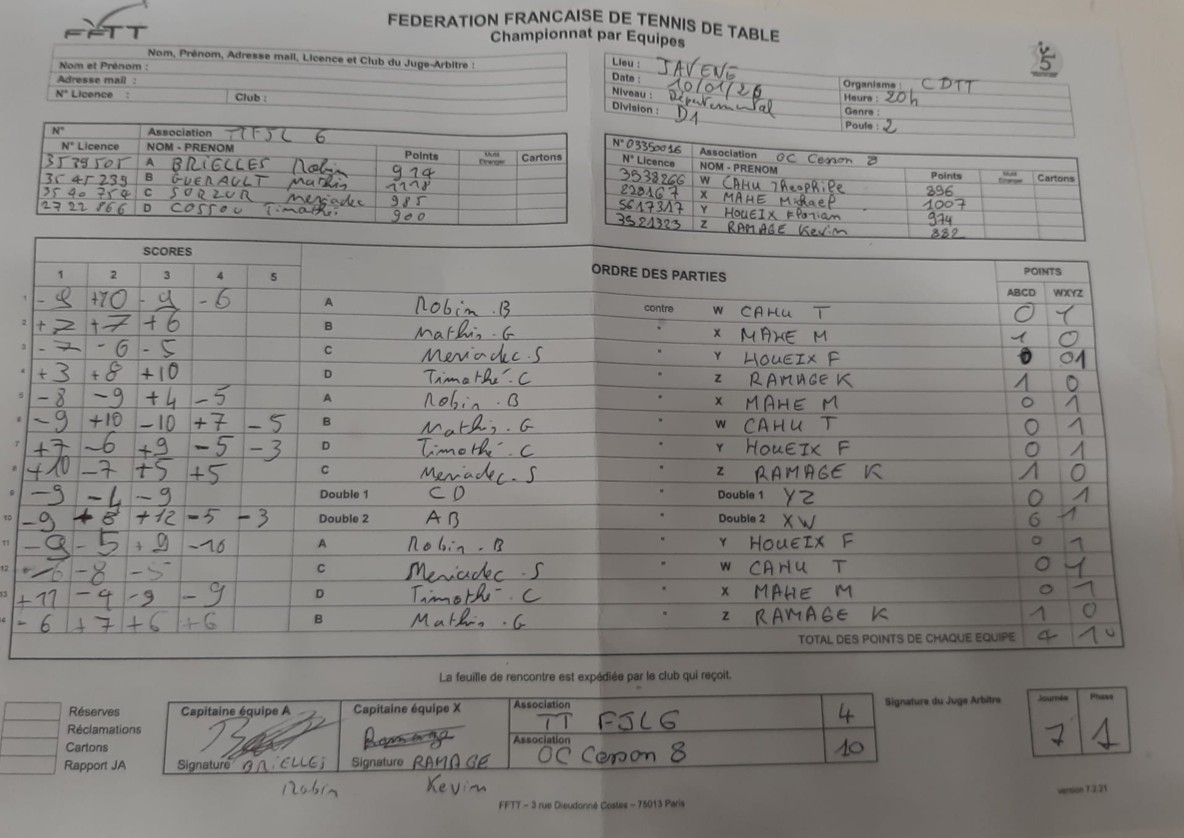 FFTT
FEDERATION FRANCAISE DE TENNIS DE TABLE
Championnat par Equipes
Nom, Prénom, Adresse mail, Licence et Club du Juge-Arbitre :
Nom et Prénom :
Adresse mail :
N° Licence : Club :
Lieu : JAVENE
Date : 10/01/26
Niveau : Départemental
Division : D1
Organisme : CDTT
Heure : 20h
Genre :
Poule : 2
N° Association TTFJL 6
N° Licence NOM - PRENOM Points Cartons
3539505 A BRIELLES Robin 914
3545239 B GUERAULT Mathis 1118
3540754 C SORZUR Meriadec 985
2722866 D COSSOU Timothé 900
N° 03350016 Association OC Cesson 8
N° Licence NOM - PRENOM Points Cartons
3538266 W CAHU Théophile 896
228167 X MAHE Michael 1007
5617317 Y HOUEIX Florian 974
3521323 Z RAMAGE Kevin 882
SCORES ORDRE DES PARTIES POINTS
1 2 3 4 5 ABCD WXYZ
1 -8 +10 -9 -6 A Robin.B contre W CAHU T 0 1
2 +2 +7 +6 B Mathis.G " X MAHE M 1 0
3 -7 -6 -5 C Meriadec.S " Y HOUEIX F 0 01
4 +3 +8 +10 D Timothé.C " Z RAMAGE K 1 0
5 -8 -9 +4 -5 A Robin.B " X MAHE M 0 1
6 -9 +10 -10 +7 -5 B Mathis.G " W CAHU T 0 1
7 +7 -6 +9 -5 -3 D Timothé.C " Y HOUEIX F 0 1
8 +10 -7 +5 +5 C Meriadec.S " Z RAMAGE K 1 0
9 -9 -4 -9 Double 1 CD " Double 1 YZ 0 1
10 -9 +8 +12 -5 -3 Double 2 AB " Double 2 XW 0 1
11 -9 -5 +9 -10 A Robin.B " Y HOUEIX F 0 1
12 -6 -8 -5 C Meriadec.S " W CAHU T 0 1
13 +11 -4 -9 -9 D Timothé.C " X MAHE M 0 1
14 -6 +7 +6 +6 B Mathis.G " Z RAMAGE K 1 0
TOTAL DES POINTS DE CHAQUE EQUIPE 4 10
La feuille de rencontre est expédiée par le club qui reçoit.
Réserves
Réclamations
Cartons
Rapport JA
Capitaine équipe A
Signature BRIELLES
Robin
Capitaine équipe X
Signature RAMAGE
Kevin
Association
TT FJL6 4
Association
OC Cesson 8 10
Signature du Juge Arbitre
Journée Phase
7 1
version 7.3.21
FFTT – 3 rue Dieudonné Costes – 75013 Paris